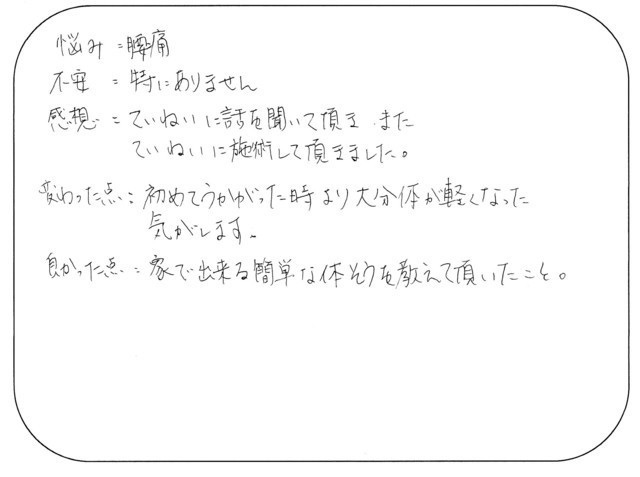 悩み = 腰痛
不安 = 特にありません
感想 = ていねいに話を聞いて頂き また
ていねいに施術して頂きました。
変わった点 : 初めてうかがった時より大分体が軽くなった
気がします。
良かった点 : 家で出来る簡単な体そうを教えて頂いたこと。